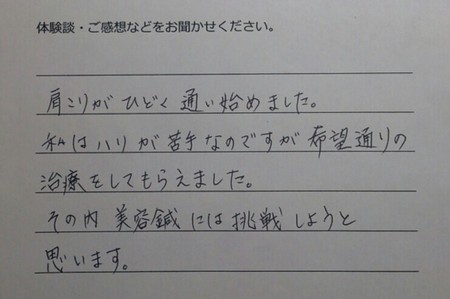 体験談・ご感想などをお聞かせください。
肩こりがひどく通い始めました。
私はハリが苦手なのですが希望通りの
治療をしてもらえました。
その内美容鍼には挑戦しようと
思います。